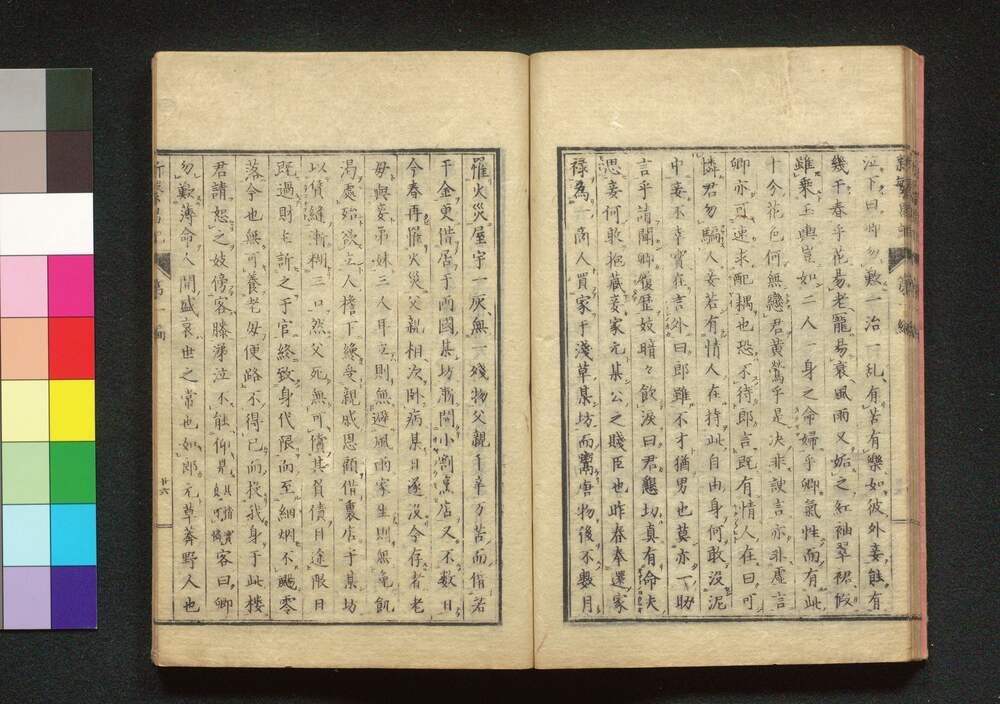 泣下曰卿勿歎一治一乱有苦有樂如彼外妾能有
幾千春乎花易老寵易衰風雨又妬之紅袖翠裙假
雖乗玉輿豈如二人一身之命婦乎卿氣性而有此
十今花色何無戀君黄鶯乎是决非諛言亦非虚言
卿亦可速求配耦也恐不待郎言既有情人在曰可
憐君勿騙人妾若有情人在持此自由身何敢没泥
中妾不幸實在言外曰郎雖不才猶男也莫亦一助
言乎請聞卿履歴妓暗々飲涙曰君懇切真有命夫
思妾何敢抱藏妾家元某公之賤臣也昨春奉還家
禄為一商人買家于淺草某坊而鬻唐物後不數月
罹火災屋宇一灰無一殘物父親千辛万苦而借若
干金更借居于両國某坊漸開小割烹店又不数日
今春再罹火災父親相次卧病某日遂没今存者老
母與妾弟妹三人耳立則無避風雨家坐則無免飢
渇處殆欲立人檐下縁受親戚恩顧借裏店于某坊
以賃縫漸糊三口然父死無可償其負債日逾限日
既過財主訴之于官終致身代限而至細烟不颺零
落今也無可養老母便路不得已而投我身于此楼
君請恕之妓傍客膝涕泣不能仰是其情實真可憐客曰卿
勿歎薄命人間盛衰世之常也如郎元草莽野人也
廿六